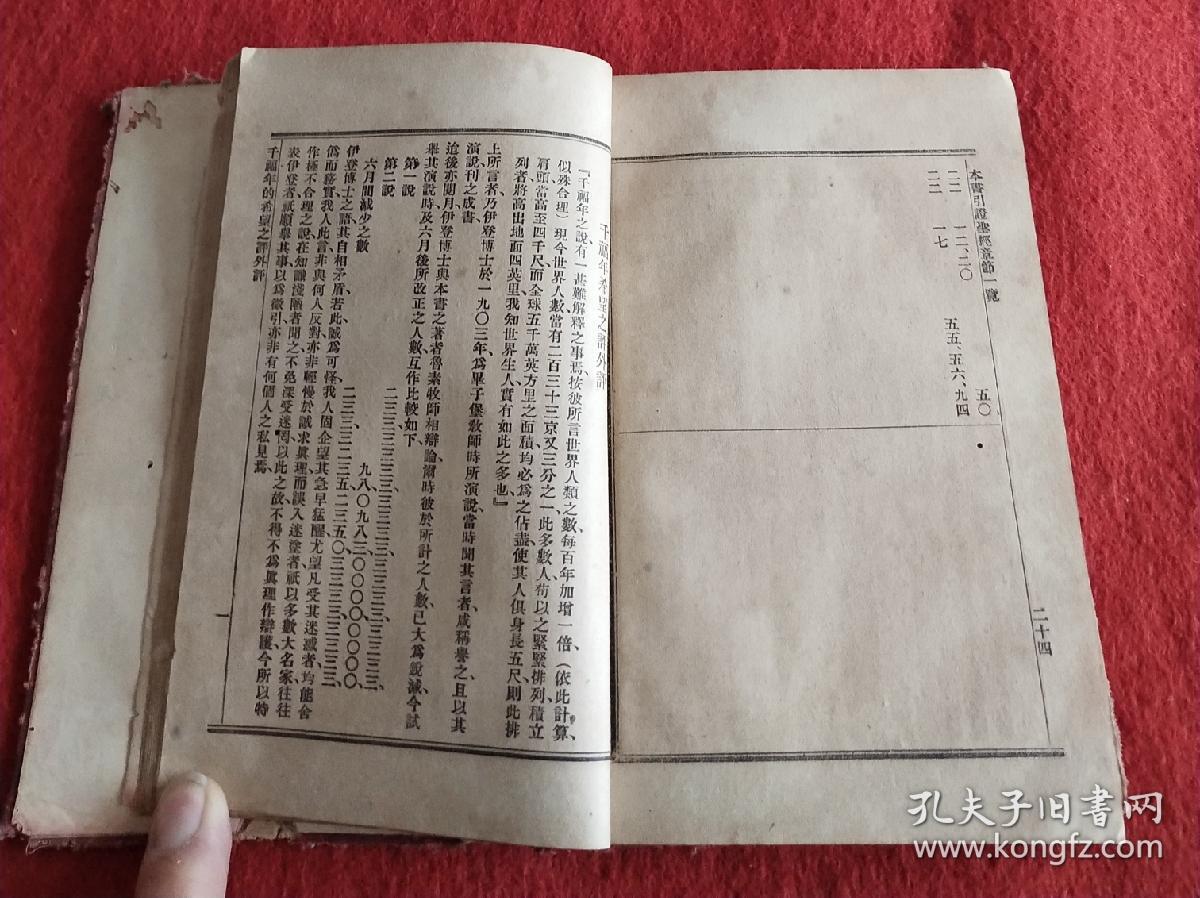 本書引證聖經章節一覽
二二 一二、二〇 五〇
二二 一七 五五、五六、九四
二十四
千福年希望之評外評
『千福年之說、有一甚難解釋之事焉、按彼所言世界人類之數、每百年加增一倍、（依此計算、
似殊合理）現今世界人數當有二百三十三京又三分之一、此多數人、苟以之緊緊排列積立
肩頭、當高至四千尺、而全球五千萬英方里之面積、均必爲之佔盡、使其人俱身長五尺、則此排
列者將高出地面四英里、我知世界生人實有如此之多也』
上所言者、乃伊登博士於一九〇三年爲畢子堡敎師時所演說、當時聞其言者、咸稱譽之、且以其
演說刊之成書、
迨後亦閱月、伊登博士與本書之著者魯素牧師相辯論、爾時彼於所計之人數、已大爲說減、今試
舉其演說時、及六月後所改正之人數、互作比較如下、
第一說
第二說
六月間減少之數
伊登博士之語、其自相矛盾若此、誠爲可怪、我人固企望其急早猛醒、尤望凡受其迷惑者、均能舍
僞而務實、我人此言、非與何人反對、亦非輕慢於誠求眞理而誤入迷塗者、祇以多數大名家、往往
作極不合理之說、在知識淺陋者聞之、不免深受迷罔、以此之故、不得不爲眞理作辯護、今所以特
表伊登者、祇順舉其事以爲徵引、亦非有何個人之私見焉、
千福年的希望之評外評
一
孔夫子旧书网
www.kongfz.com